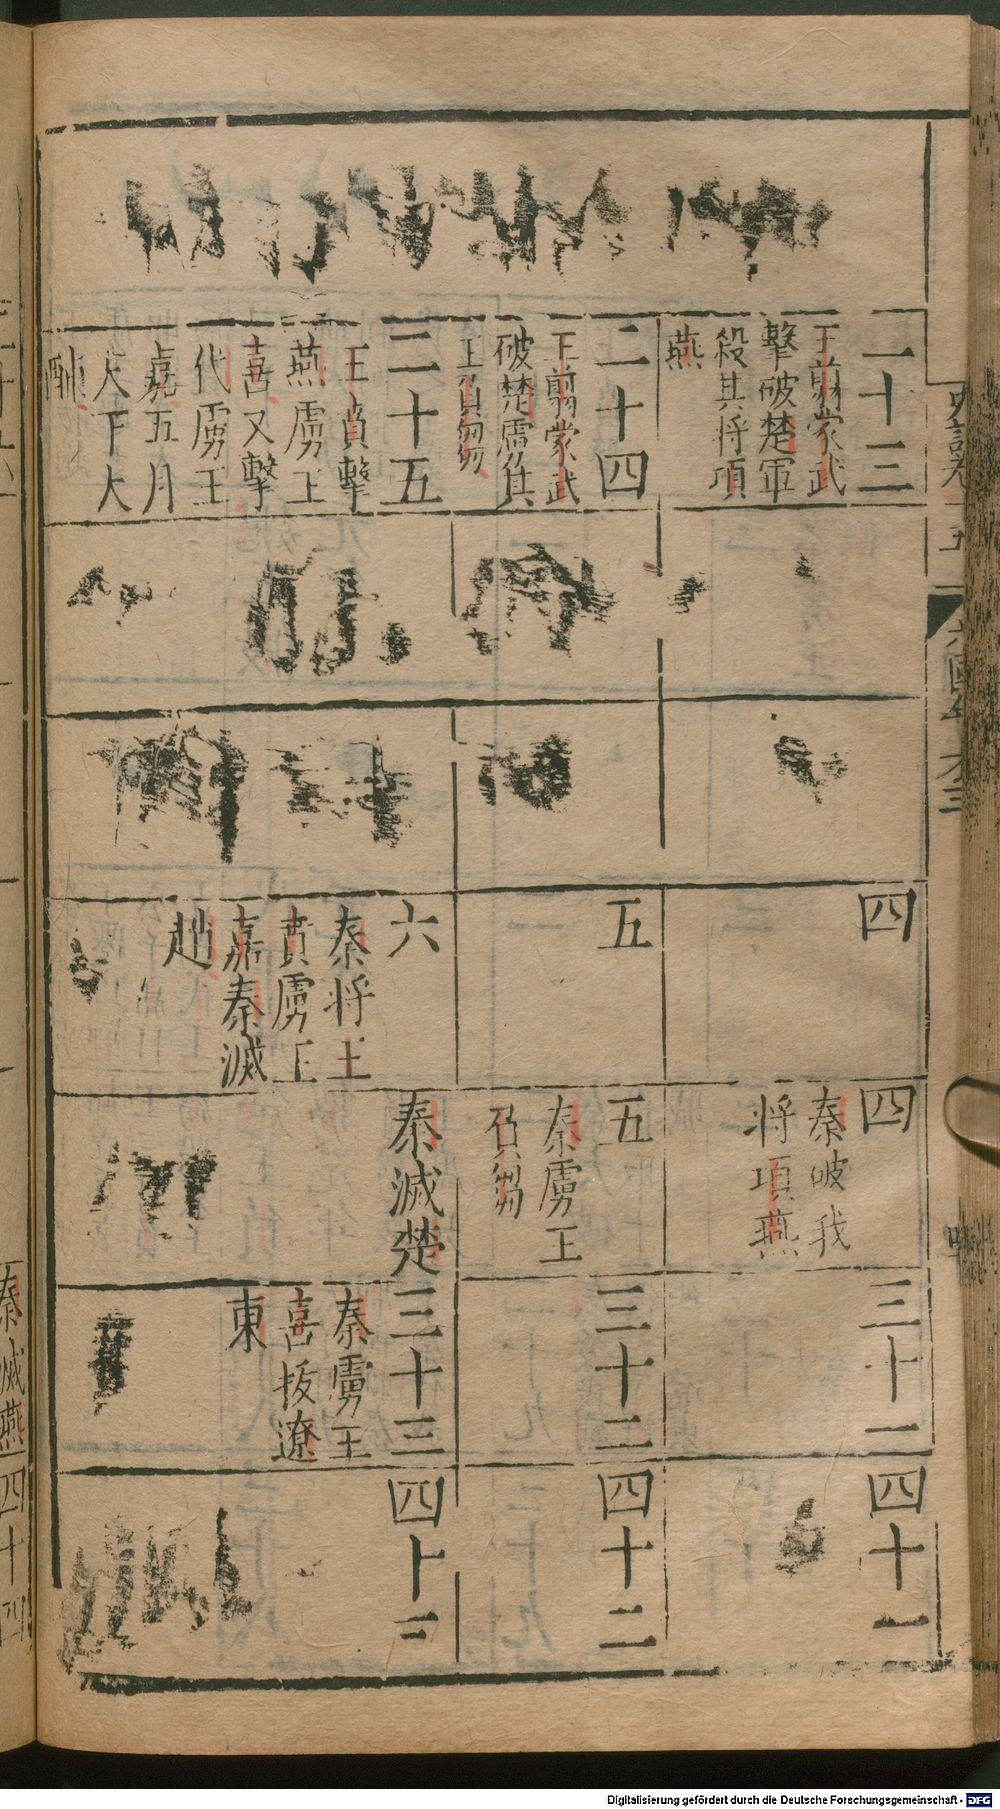 二十三
王翦蒙武
擊破楚軍
殺其将項
燕
四
四
秦破我
将項燕
三十二
四十一
二十四
王翦蒙武
破楚虜其
王負芻
五
五
秦虜王
負芻
三十二
四十二
二十五
王賁擊
燕虜王
喜又擊
代虜王
嘉五月
天下大
酺
六
秦将王
賁虜王
嘉秦滅
趙
秦滅楚
三十三
秦虜王
喜拔遼
東
四十三
秦滅燕
四十四
Digitalisierung gefördert durch die Deutsche Forschungsgemeinschaft - DFG